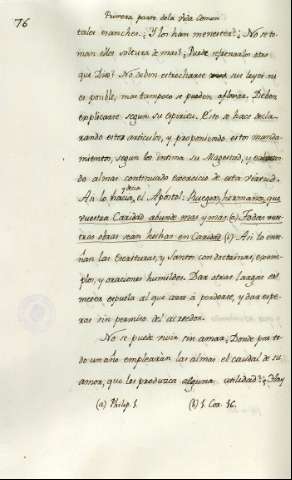 76
Primera parte de la Vida Comun
tales manchas? Y los han menester? No se to-
man ellos soltura de mas? Puede refrenarlos otro
que Dios? No deben estrecharse sus leyes ni
es posible, mas tampoco se pueden afloxar. Deben
explicarse segun su espiritu. Esto se hace decla-
rando estos articulos, y proponiendo estos manda-
mientos, segun los intima su Magestad, y
do almas continuado exercicio de esta
Asi lo hacia, y decia el Apostol: Ruegoos, hermanos, que
vuestra Caridad abunde mas y mas (a) Todas vues-
tras obras sean hechas en Caridad (b) Asi lo ense-
ñan las Escrituras, y Santos con doctrinas, exem-
plos, y oraciones humildes. Dar otras largas es
meter espuela al que corre á perderse, y dar espe-
ras sin permiso del acreedor.
No se puede vivir sin amar; Donde pues to-
do un año emplearán las almas el caudal de su
amor, que les produzca alguna utilidad? Hay
(a) Philip. 1. (b) 1. Cor. 16.